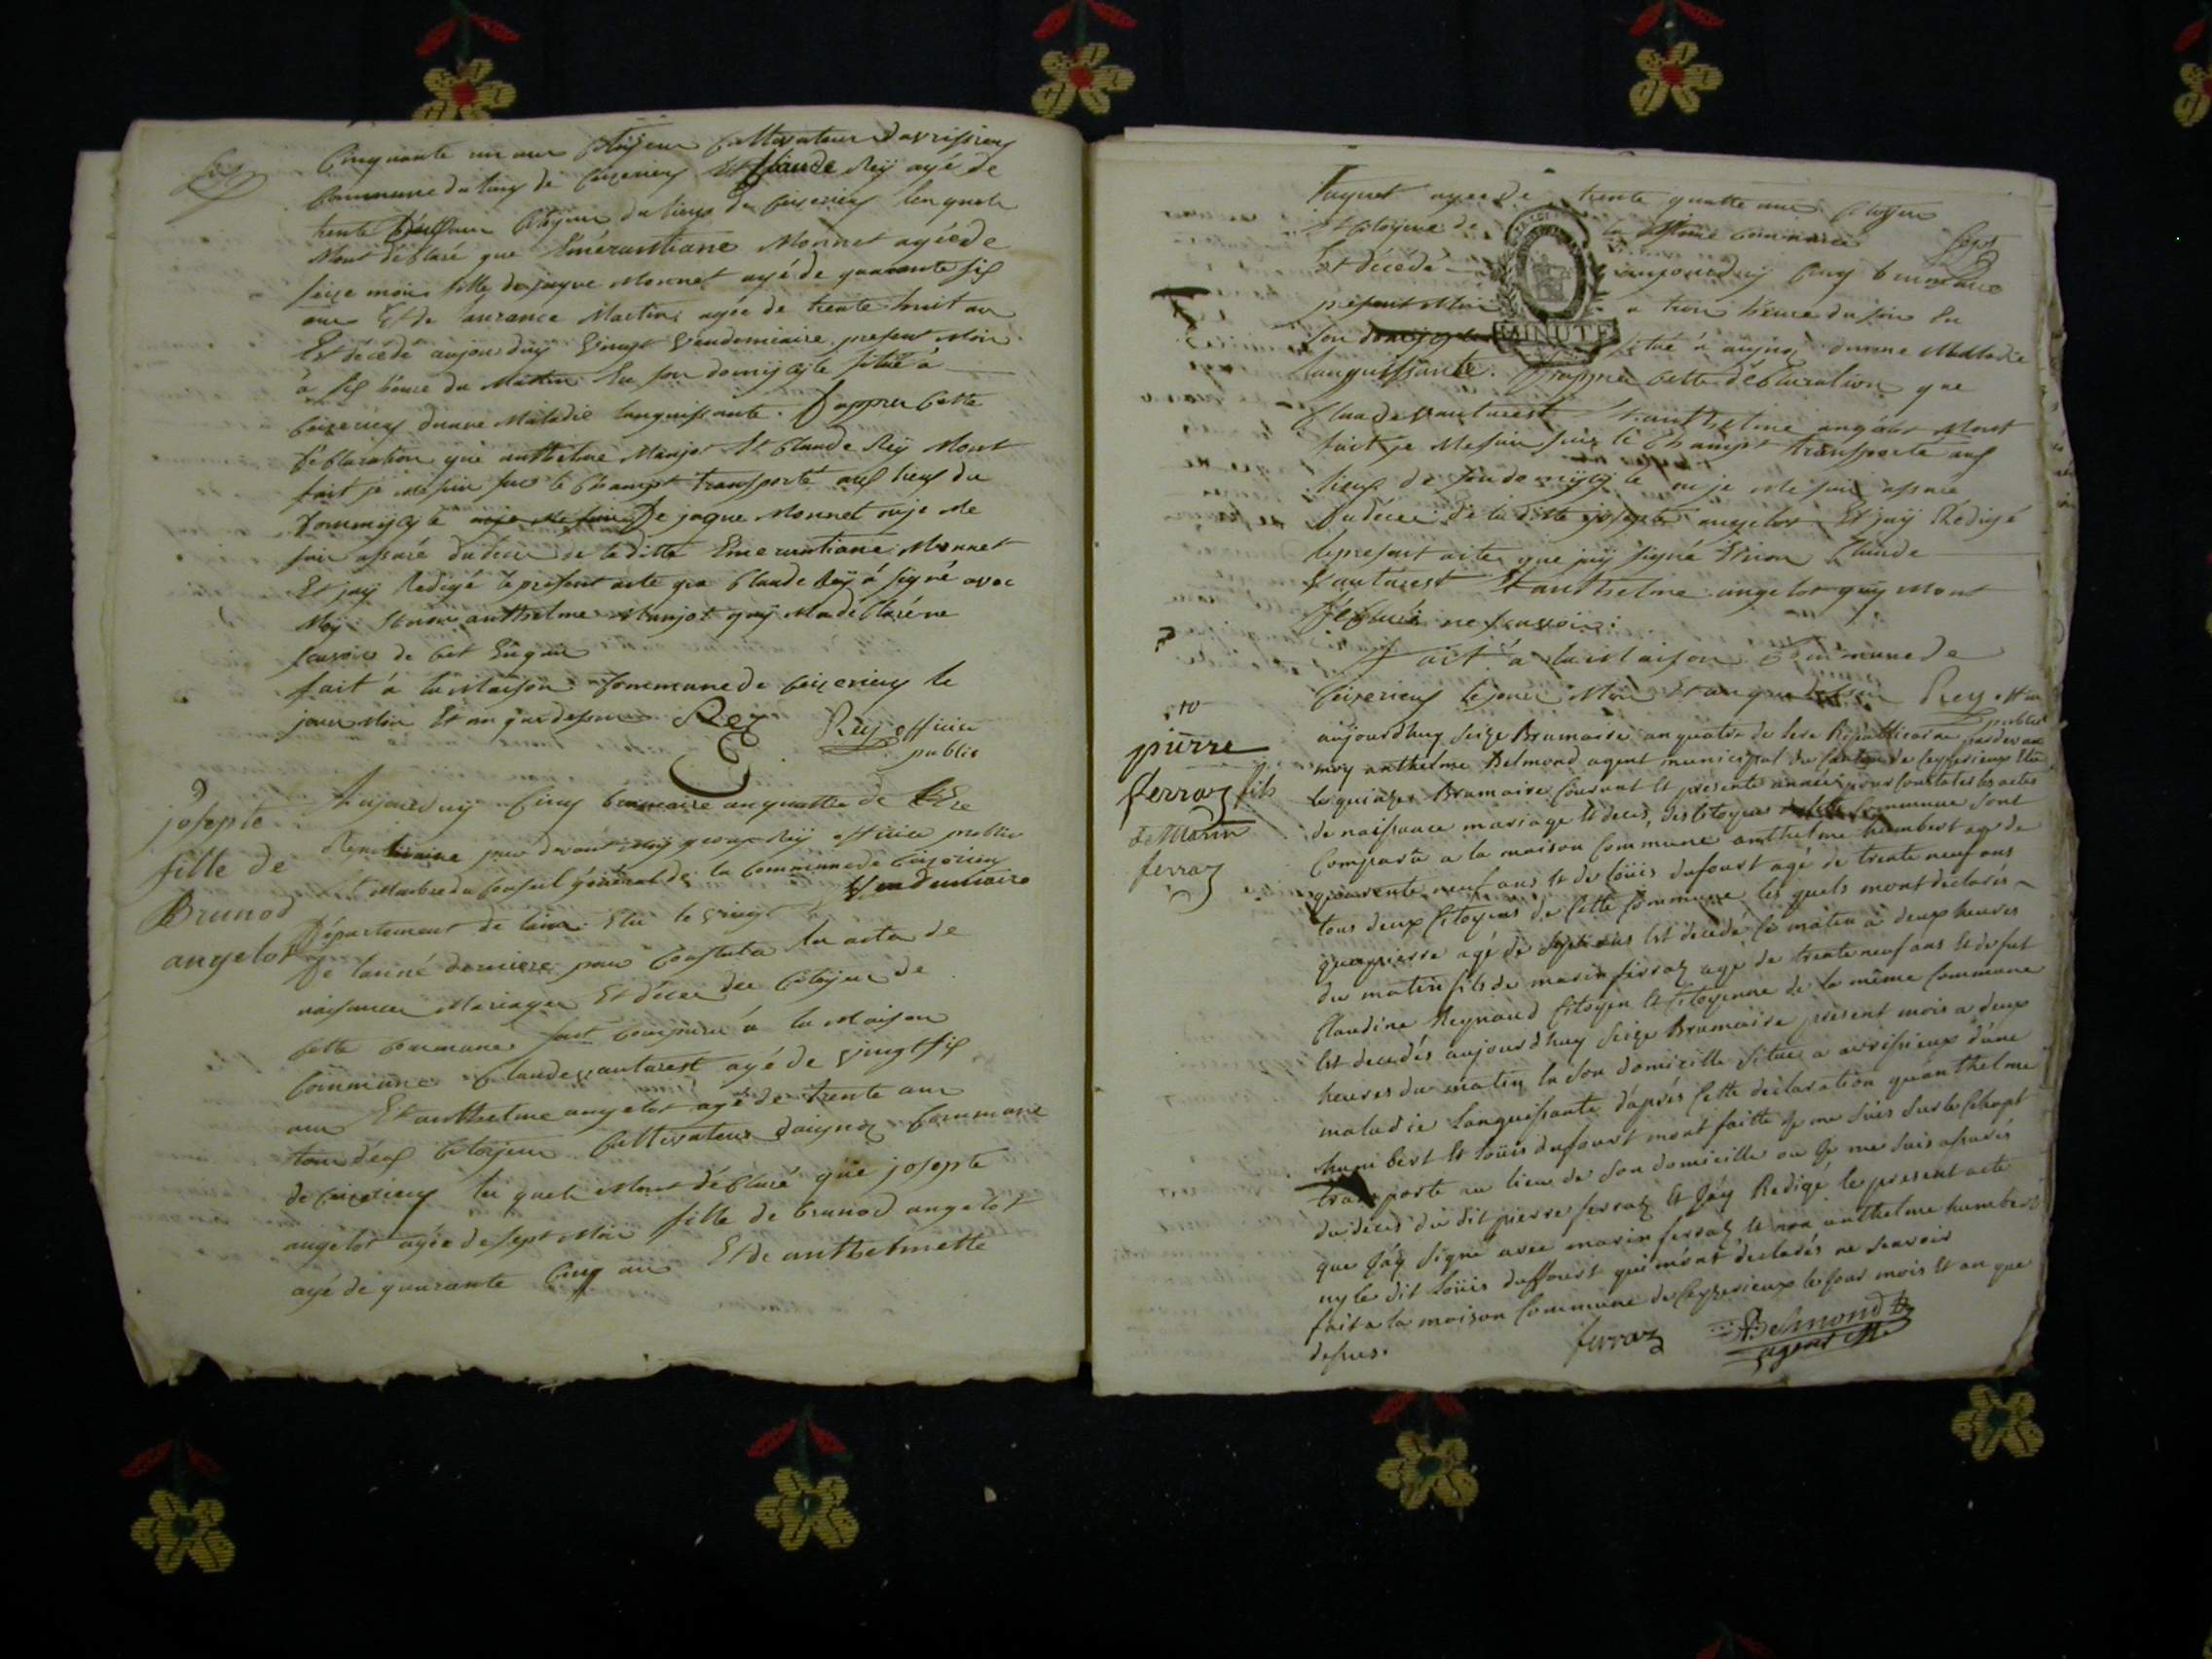 Cinquante un ans Citoyens Cultivateurs davrissieux
Commune du lieux de Ceizerieux Et Claude Reÿ agé de
trente Citoyens du lieux de Ceizerieux lesquels
Mont déclaré que Emérantiane Monnet agée de
seize mois fille de jaque Monnet agé de quarante six
ans Et de laurance Martin agée de trente huit ans
Est décédé aujourduÿ Vingt Vendemiaire present Mois
à six heure du Matin En son domicile situé à
Ceizerieux dunne Maladie languissante. Dapprès Cette
Déclaration que anthelme Monjot Et Claude Reÿ Mont
fait je me suis sur le Champt transporté aux lieux du
Dommicile De jaque Monnet ou je me
suis assuré du deces de laditte Emerantiane Monnet
Et jaÿ Redigé le present acte que Claude Reÿ à signé avec
Moÿ Et non anthelme Monjot quÿ Ma déclaré ne
scavoir de Cet Enquis
fait à la Maison Commune de Ceizerieux le
jour Mois Et an que dessus Rey Rey officier
public
9
josepte
fille de
Brunod
angelot
Aujourduÿ Cinq brumaire an quattre de Lere
Republicaine par devant Moÿ Reÿ officier public
Et Membre du Conseil général de la Commune de Ceizerieux
Département de lain Elu le Vingt Vendemiaire
De lanné derniere pour Constater les actes de
naissances Mariages Et déces des Citoyens de
Cette Commune sont Comparu à la Maison
Commune Claude vautarest agé de Vingt six
ans Et anthelme angelot agé de trente ans
tous deux Citoyens Cultivateurs daignoz Commune
de Ceizerieux les quels Mont déclaré que josepte
angelot agée de sept Mois fille de brunod angelot
agé de quarante Cinq ans Et de anthelmette
agée de trente quatre ans Citoyen
Et Citoyenne de la Même Commune
Est décédé aujourduÿ Cinq brumaire
present Mois a trois heure du soir En
son situé à aignoz dunne Maladie
languissante. Dapprès Cette déclaration que
Claude vautarest Et anthelme angelot Mont
fait je Me suis sur le Champt transporté aux
lieux de son domicile ou je Me suis assuré
Du déces de la ditte josepte angelot Et jaÿ Rédigé
le present acte que jaÿ signé Et non Claude
vautarest Et anthelme angelot quÿ Mont
déclaré ne scavoir
Fait à la Maison Commune de
Ceizerieux le jour Mois Et an que Rey officier
public
MINUTE
10
pierre
ferraz fils
de Marin
ferraz
aujourdhuy seize Brumaire an quatre de lere Republicaine pardevant
moy anthelme Belmond agent municipal du Canton de Ceyzerieux Elu
le quinze Brumaire Courant et presente année pour Constater les actes
de naissance mariage et deces, des Citoyens Commune sont
Comparu a la maison Commune anthelme humbert agé de
quarante neuf ans et de loüis dufourt agé de trente neuf ans
tous deux Citoyens de Cette Commune les quels mont declarés
que pierre agé de sept ans est decedé Ce matin a deux heures
du matin fils de marin ferraz agé de trente neuf ans et de fut
Claudine Reynaud Citoyen et Citoyenne de la même Commune
Est decedés aujourdhuy seize Brumaire present mois a deux
heures du matin en son domicille situé a avrissieux d'une
maladie languissante d'après Cette declaration qu'anthelme
humbert et loüis dufourt mont faitte je me suis sur le Champt
transporte au lieu de son domicille ou je me suis assurés
du déces du dit pierre ferraz et j'ay Redigé le present acte
que j'ay signé avec marin ferraz et non anthelme humbert
ny le dit loüis duffourt qui m'ont declarés ne scavoir
fait a la maison Commune de Ceyzerieux le jour mois et an que
dessus.
ferraz Belmond
agent